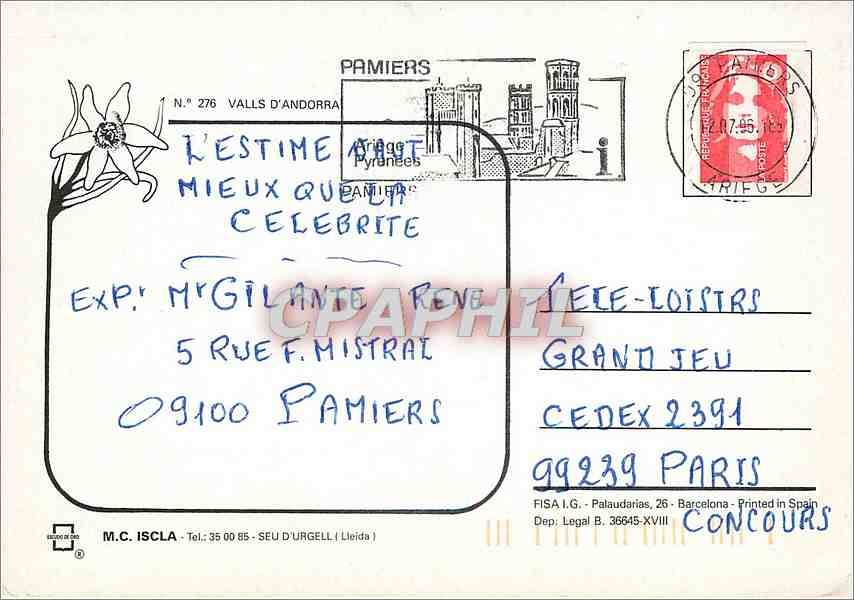 PAMIERS
Ariège
Pyrénées
PAMIERS
i
09 PAMIERS
12.07.95.18H
ARIEGE
RÉPUBLIQUE FRANÇAISE
LA POSTE
N.º 276 VALLS D'ANDORRA
L'ESTIME VAUT
MIEUX QUE LA
CELEBRITE
EXP.r Mr GILANTE RENE
5 RUE F. MISTRAL
09100 PAMIERS
TELE-LOISIRS
GRAND JEU
CEDEX 2391
99239 PARIS
CONCOURS
CPAPHIL
FISA I.G. - Palaudarias, 26 - Barcelona - Printed in Spain
Dep: Legal B. 36645-XVIII
ESCUDO DE ORO
®
M.C. ISCLA - Tel.: 35 00 85 - SEU D'URGELL ( Lleida )